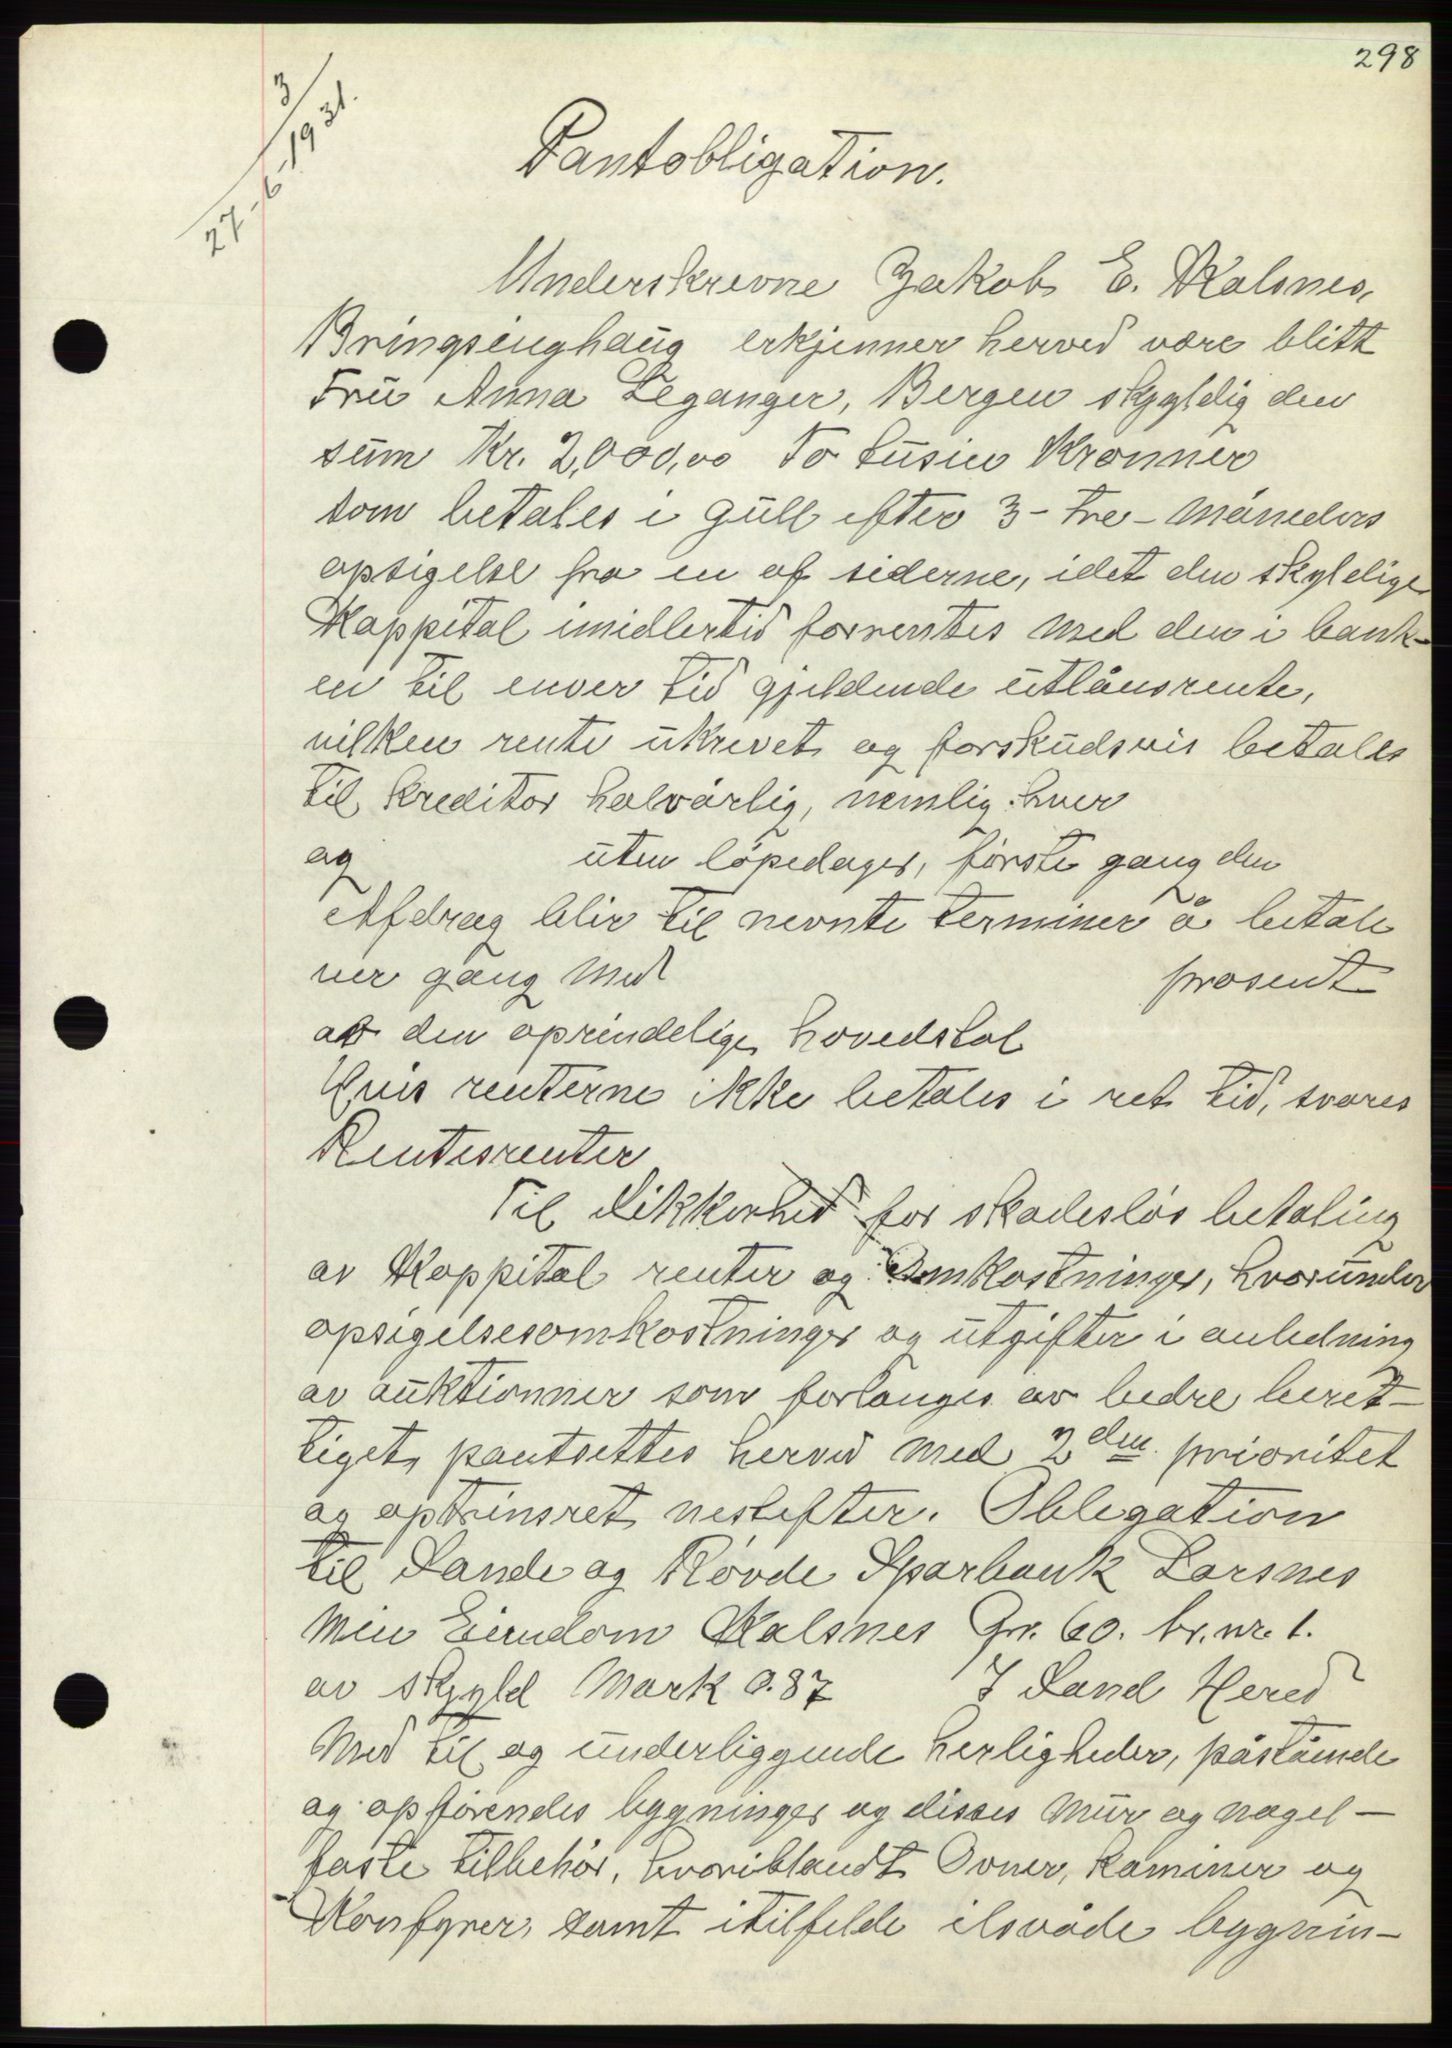 298
3
27-6-1931.
Pantobligation.
Underskrevne Jakob E. Kalsnes,
Bringsinghaug erkjenner herved være blitt
Fru Anna Leganger, Bergen skyldig den
sum Kr. 2,000,00 To tusin Kronner
som betales i gull efter 3 - tre - måneders
opsigelse fra en af siderne, idet den skyldige
Kappital imidlertid forrentes med den i bank-
en til enver tid gjeldende utlånsrente,
vilken rente ukrevet og forskudsvis betales
til kreditor halvårlig, nemlig hver
og uten löpedager, förste gang den
Afdrag blir til nevnte terminer å betale
ver gang med prosent
av den oprindelige hovedstol
Hvis renterne ikke betales i ret tid, svares
Rentesrenter
Til Sikkerhed for skadeslös betaling
av Kappital renter og Omkostninger, hvorunder
opsigelsesomkostninger og utgifter i anledning
av auktionner som forlanges av bedre beret-
tiget, pantsettes herved med 2den prioritet
og optrinsret nestefter. Obligation
til Sande og Rövde Sparbank Larsnes
min Eiendom Kalsnes Gr. 60. br. nr. 1.
av skyld Mark 0.87 I Sand Hered
Med til og underliggende herligheder, påstående
og opförendes bygninger og disses mur og nagel-
faste tilbehör, hvoriblandt Ovner, kaminer og
Konfyrer, samt itilfelde ilsvåde bygnin-